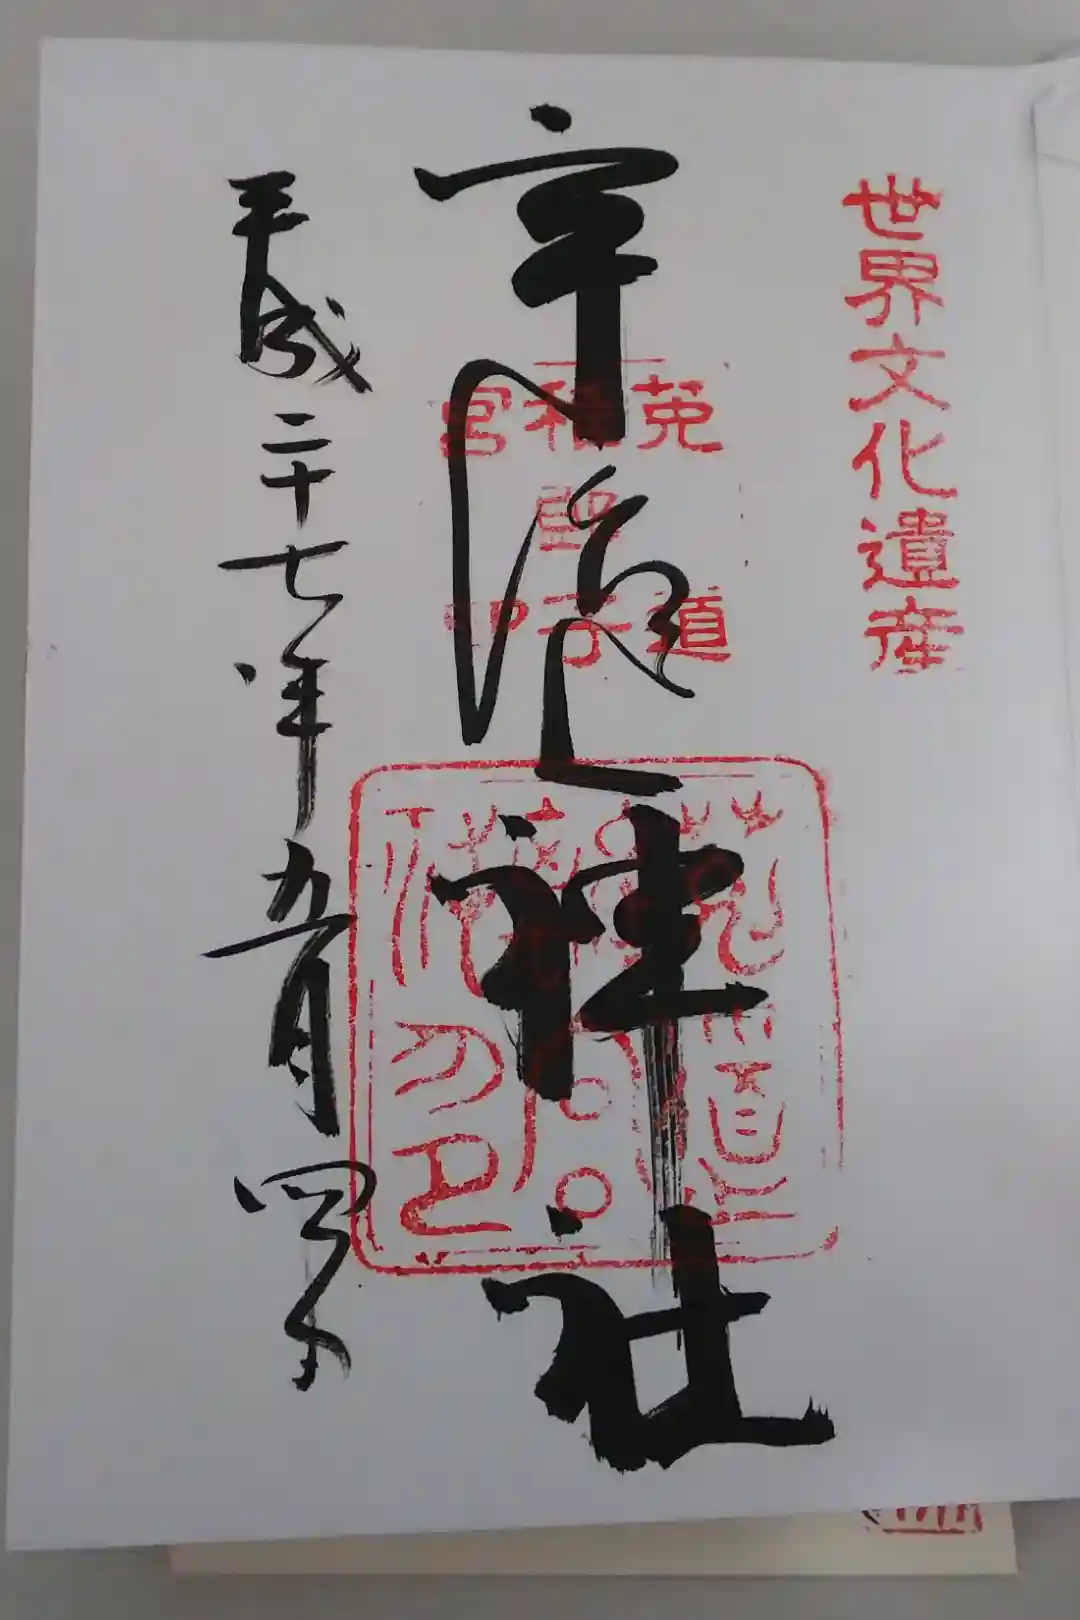 世界文化遺産
宇治上神社
菟道
稚郎子
宮印
平成二十七年五月四日